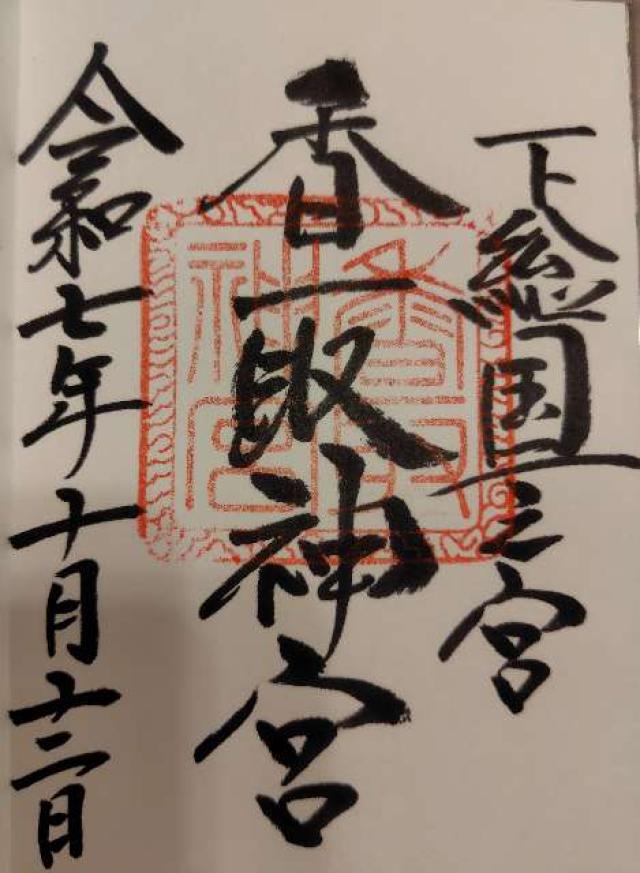 下総国一之宮
香取神宮
令和七年十月十二日
香取神宮